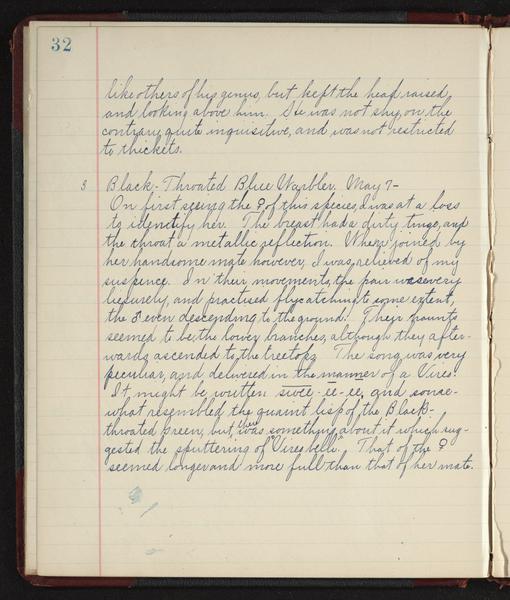 32
like others of his genus, but kept the head raised,
and looking above him. He was not shy, on the
contrary, quite inquisitive, and was not restricted
to thickets.
3 Black-Throated Blue Warbler. May 7-
On first seeing the ♀ of this species, I was at a loss
to identify her. The breast had a dirty tinge, and
the throat a metallic reflection. When joined by
her handsome mate however, I was relieved of my
suspence. In their movements, the pair were very
liesurely, and practised flycatching to some extent,
the ♂ even descending to the ground. Their haunts
seemed to be the lower branches, although they after-
wards ascended to the treetops. The song was very
peculiar, and delivered in the manner of a Vireo.
It might be written swee-ee-ee, and some-
what resembled the quaint lisp of the Black-
throated Green, but there was something about it which sug-
gested the sputtering of "Vireo belli". That of the ♀
seemed longer and more full than that of her mate.